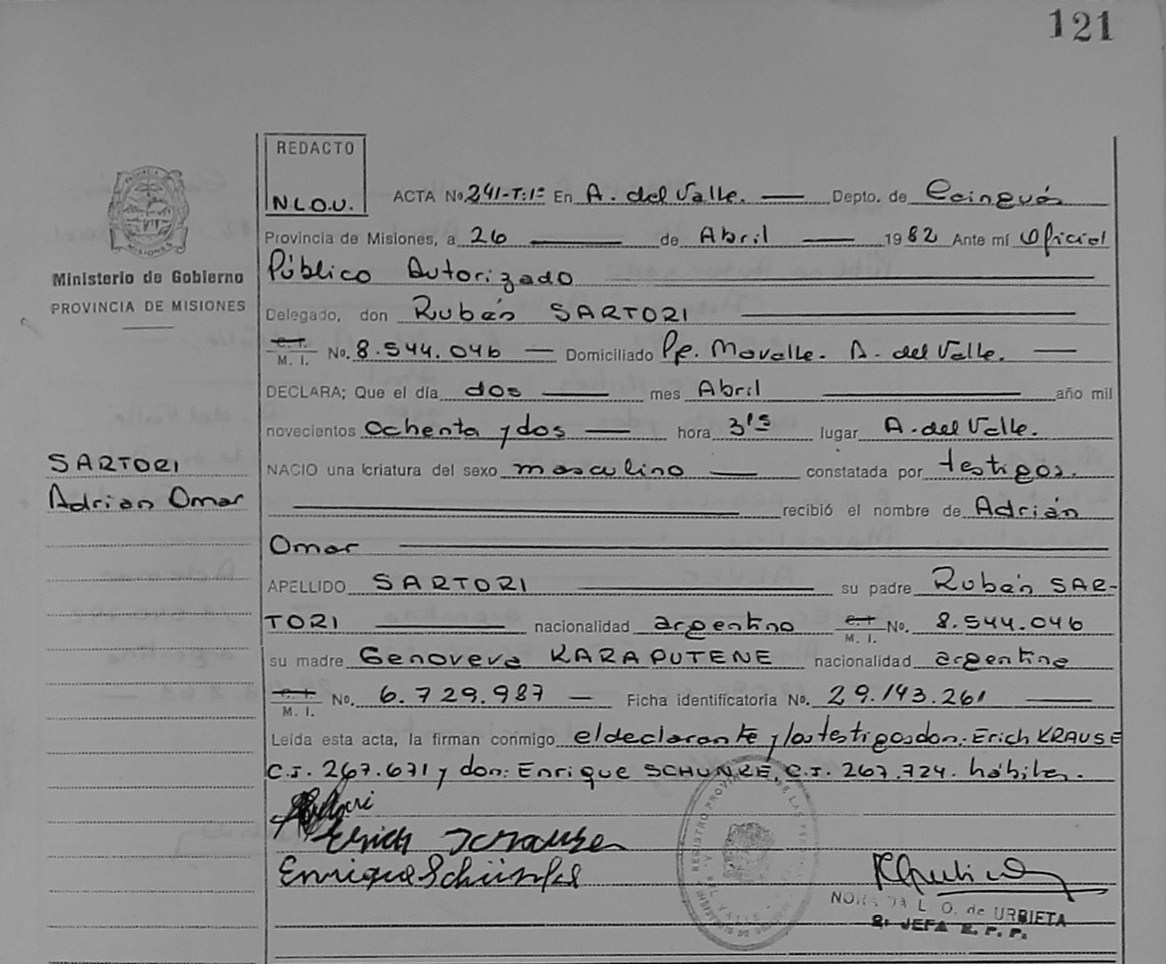 121
REDACTO
N.L.O.U.
ACTA No. 241-T:1º En A. del Valle. — Depto. de Cainguás
Provincia de Misiones, a 26 — de Abril — 1982 Ante mí Oficial
Público Autorizado
Delegado, don Rubén SARTORI
C. I.
M. I. No. 8.544.046 — Domiciliado Pje. Mavalle. A. del Valle. —
DECLARA; Que el día dos — mes Abril — año mil
novecientos ochenta y dos — hora 3ºs lugar A. del Valle.
NACIO una criatura del sexo masculino — constatada por testigos.
— recibió el nombre de Adrián
Omar —
APELLIDO SARTORI — su padre Rubén SAR-
TORI — nacionalidad argentino C. I. M. I. No. 8.544.046
su madre Genoveva KARAPUTENE nacionalidad argentina
C. I.
M. I. No. 6.729.987 — Ficha identificatoria No. 29.143.261 —
Leída esta acta, la firman conmigo el declarante y los testigos don: Erich KRAUSE
C.I. 267.671 y don: Enrique SCHUNKE, C.I. 267.724. hábiles.
Erich Krause
Enrique Schünke
DA L. O. de URRIETA
JEFA R. P. P.
Ministerio de Gobierno
PROVINCIA DE MISIONES
SARTORI
Adrian Omar
REGISTRO PROVINCIAL DE LAS